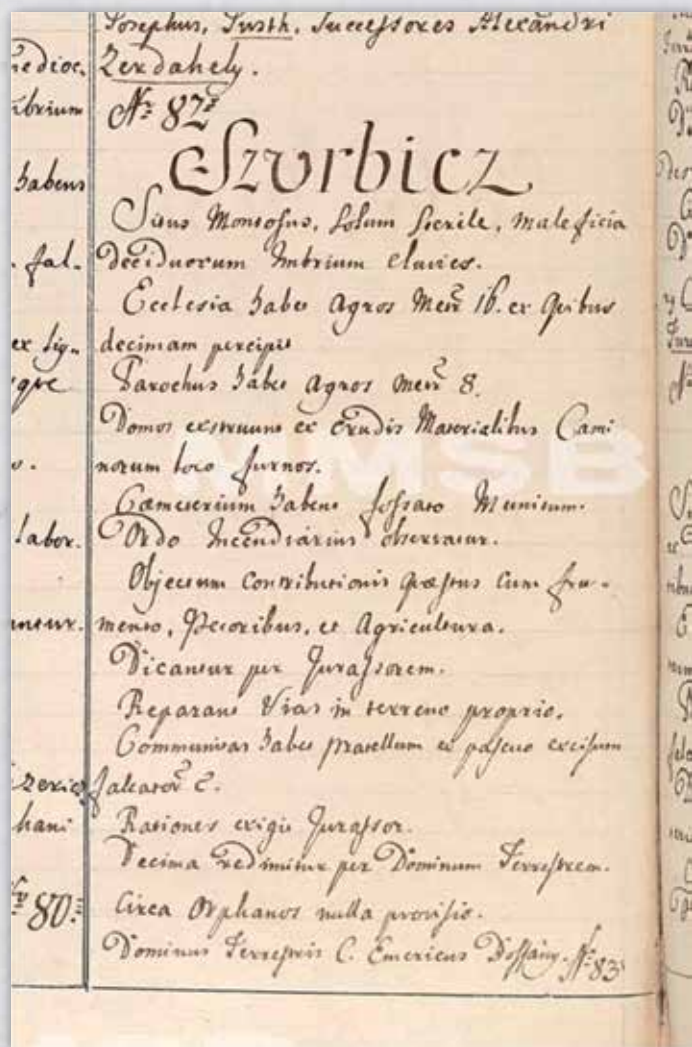 Josephus, Justh, Successores Alexandri
Zerdahely.
Nr. 82.
Szvrbicz
Situs Montosus, Solum sterile, maleficia
deciduorum Imbrium eluvies.
Ecclesia habet Agros Metr 16. ex Quibus
decimam percipit
Parochus habet Agros Metr 8.
Domos exstruunt ex Crudis Materialibus Cami
norum loco furnos.
Cæmeterium habent fossato Munitum.
Ordo Incendiarius observatur.
Objectum Contributionis Quæstus Cum fru-
mento, Pecoribus, et Agricultura.
Dicantur per Jurassorem.
Reparant Vias in terreno proprio.
Communitas habet pratellum ex pascuo excisum
falcator 2.
Rationes exigit Jurassor.
Decima redimitur per Dominum Terrestrem.
Circa Orphanos nulla provisio.
Dominus Terrestris C. Emericus Dossány. Nr. 83
nedioc.
habens
fal-
ex lig-
labor.
hani
80.
MMSB